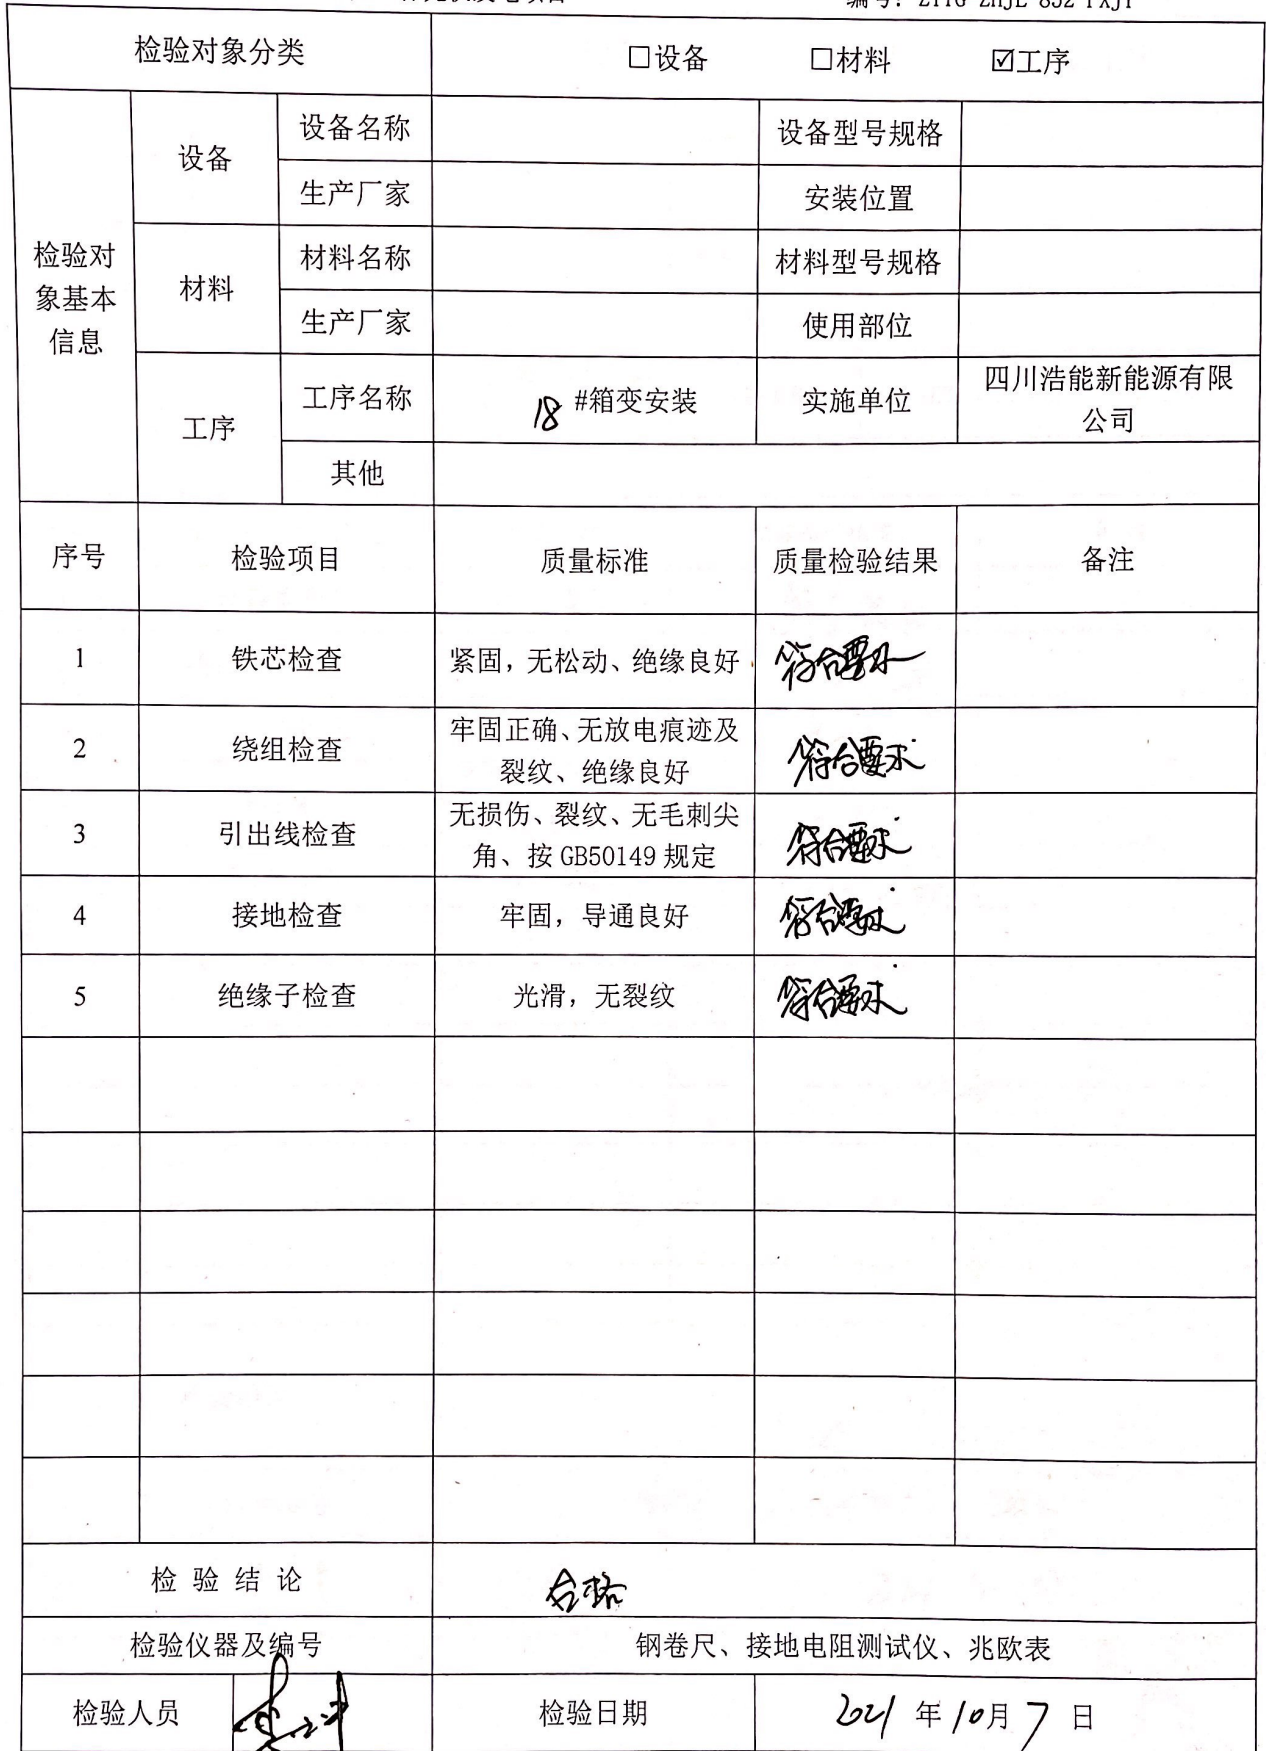 检验对象分类 □设备 □材料 ☑工序
检验对象基本信息
设备 设备名称 设备型号规格
生产厂家 安装位置
材料 材料名称 材料型号规格
生产厂家 使用部位
工序 工序名称 18 #箱变安装 实施单位 四川浩能新能源有限
公司
其他
序号 检验项目 质量标准 质量检验结果 备注
1 铁芯检查 紧固，无松动、绝缘良好 符合要求
2 绕组检查 牢固正确、无放电痕迹及
裂纹、绝缘良好 符合要求
3 引出线检查 无损伤、裂纹、无毛刺尖
角、按 GB50149 规定 符合要求
4 接地检查 牢固，导通良好 符合要求
5 绝缘子检查 光滑，无裂纹 符合要求
检 验 结 论 合格
检验仪器及编号 钢卷尺、接地电阻测试仪、兆欧表
检验人员 检验日期 2021 年 10 月 7 日